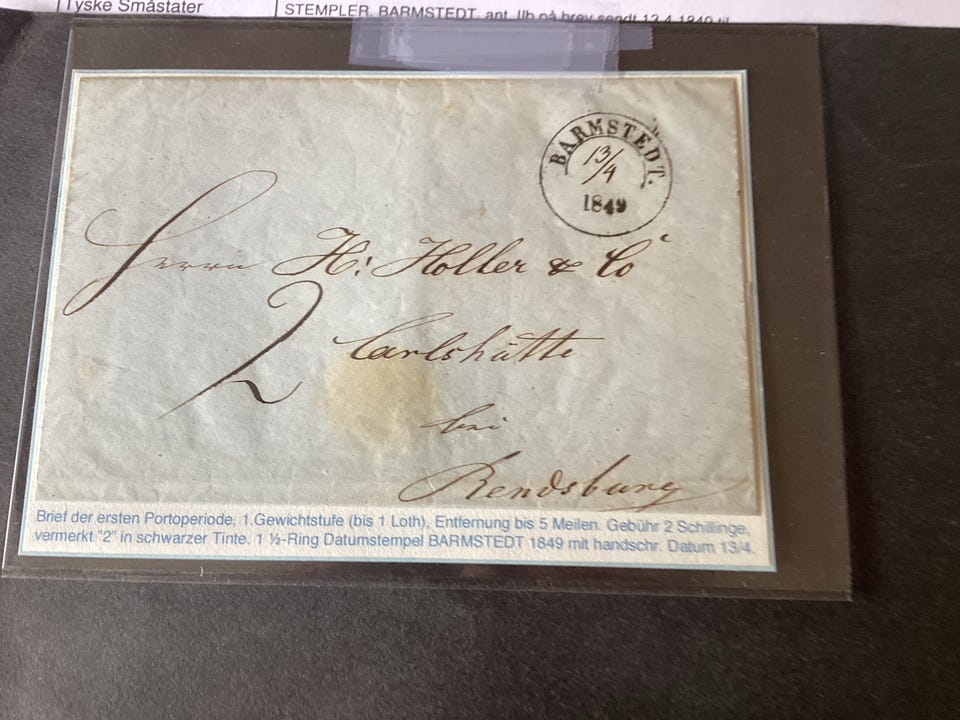 Tyske Småstater
STEMPLER, BARMSTEDT, ant. IIb på brev sendt 13.4.1849 til
BARMSTEDT.
13/4
1849
Herrn H: Holler & Co
2
Carlshütte
bei
Rendsburg
Brief der ersten Portoperiode, 1.Gewichtstufe (bis 1 Loth), Entfernung bis 5 Meilen. Gebühr 2 Schillinge,
vermerkt "2" in schwarzer Tinte. 1 ½-Ring Datumstempel BARMSTEDT 1849 mit handschr. Datum 13/4.